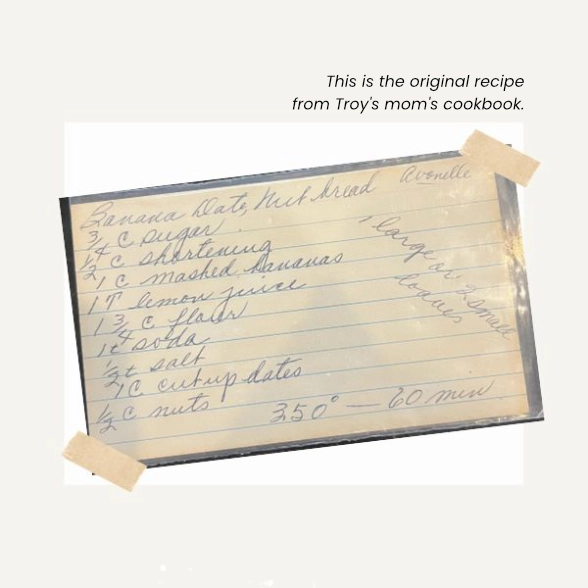 This is the original recipe
from Troy's mom's cookbook.
Banana Date, Nut bread Avonelle
3/4 C sugar
1/2 C shortening
1 C mashed bananas
1 T lemon juice
1 3/4 C flour
1 t soda
1/2 t salt
1 C cut up dates
1/2 C nuts
350° — 60 min
1 large or 2 small
loaves